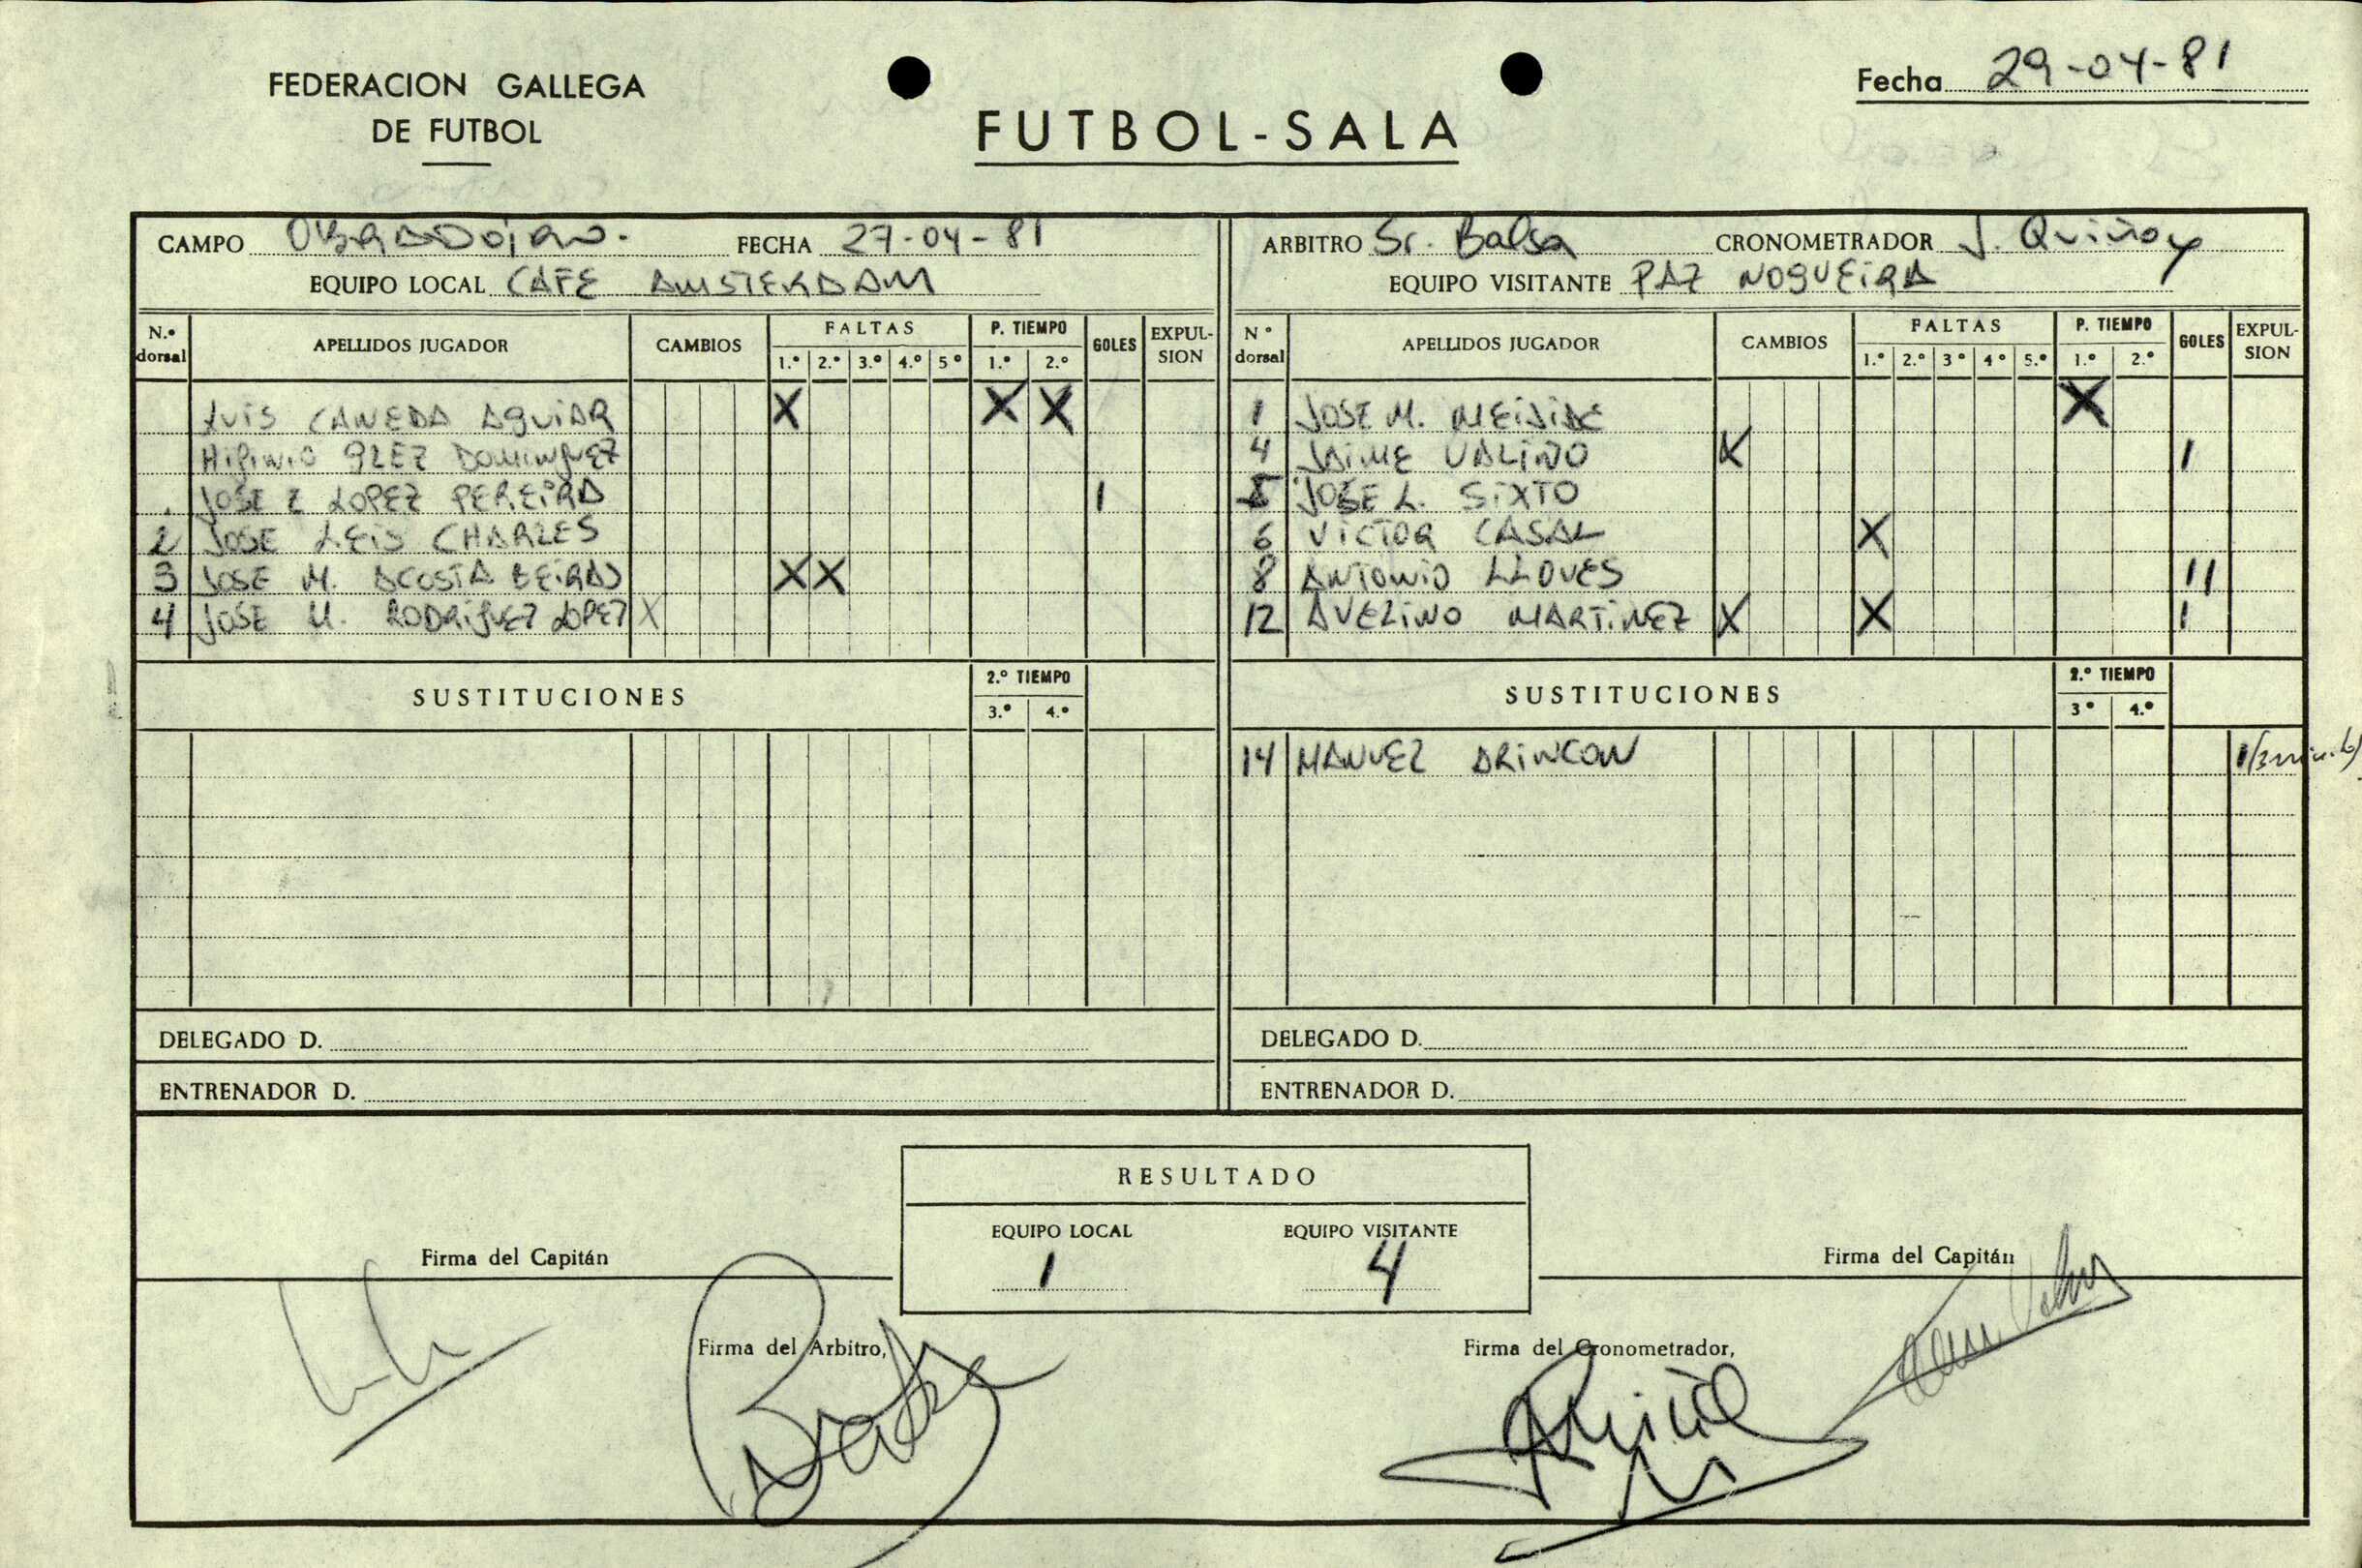 FEDERACION GALLEGA
DE FUTBOL
FUTBOL-SALA
Fecha 29-04-81
CAMPO OBRADOIRO. FECHA 27-04-81
EQUIPO LOCAL CAFE AMSTERDAM
ARBITRO Sr. Balsa CRONOMETRADOR J. Quiñoy
EQUIPO VISITANTE PAZ NOGUEIRA
N.º dorsal APELLIDOS JUGADOR CAMBIOS FALTAS 1.º 2.º 3.º 4.º 5º P. TIEMPO 1.º 2.º GOLES EXPULSION
LUIS CANEDA AGUIAR X X X
GLEZ DOMINGUEZ
JOSE E LOPEZ PEREIRA 1
2 JOSE LEIS CHARLES
3 JOSE M. ACOSTA BEIRAS X X
4 JOSE M. RODRIGUEZ LOPEZ X
SUSTITUCIONES 2.º TIEMPO 3.º 4.º
DELEGADO D.
ENTRENADOR D.
Nº dorsal APELLIDOS JUGADOR CAMBIOS FALTAS 1.º 2.º 3º 4º 5.º P. TIEMPO 1.º 2.º GOLES EXPULSION
1 JOSE M. X
4 JAIME VALIÑO X 1
5 JOSE L. SIXTO
6 VICTOR CASAL X
8 ANTONIO LLOVES 11
12 AVELINO MARTINEZ X X 1
SUSTITUCIONES 2.º TIEMPO 3º 4.º
14 MANUEL ARINCON 1
DELEGADO D.
ENTRENADOR D.
RESULTADO
EQUIPO LOCAL EQUIPO VISITANTE
1 4
Firma del Capitán
Firma del Capitán
Firma del Arbitro,
Firma del Cronometrador,